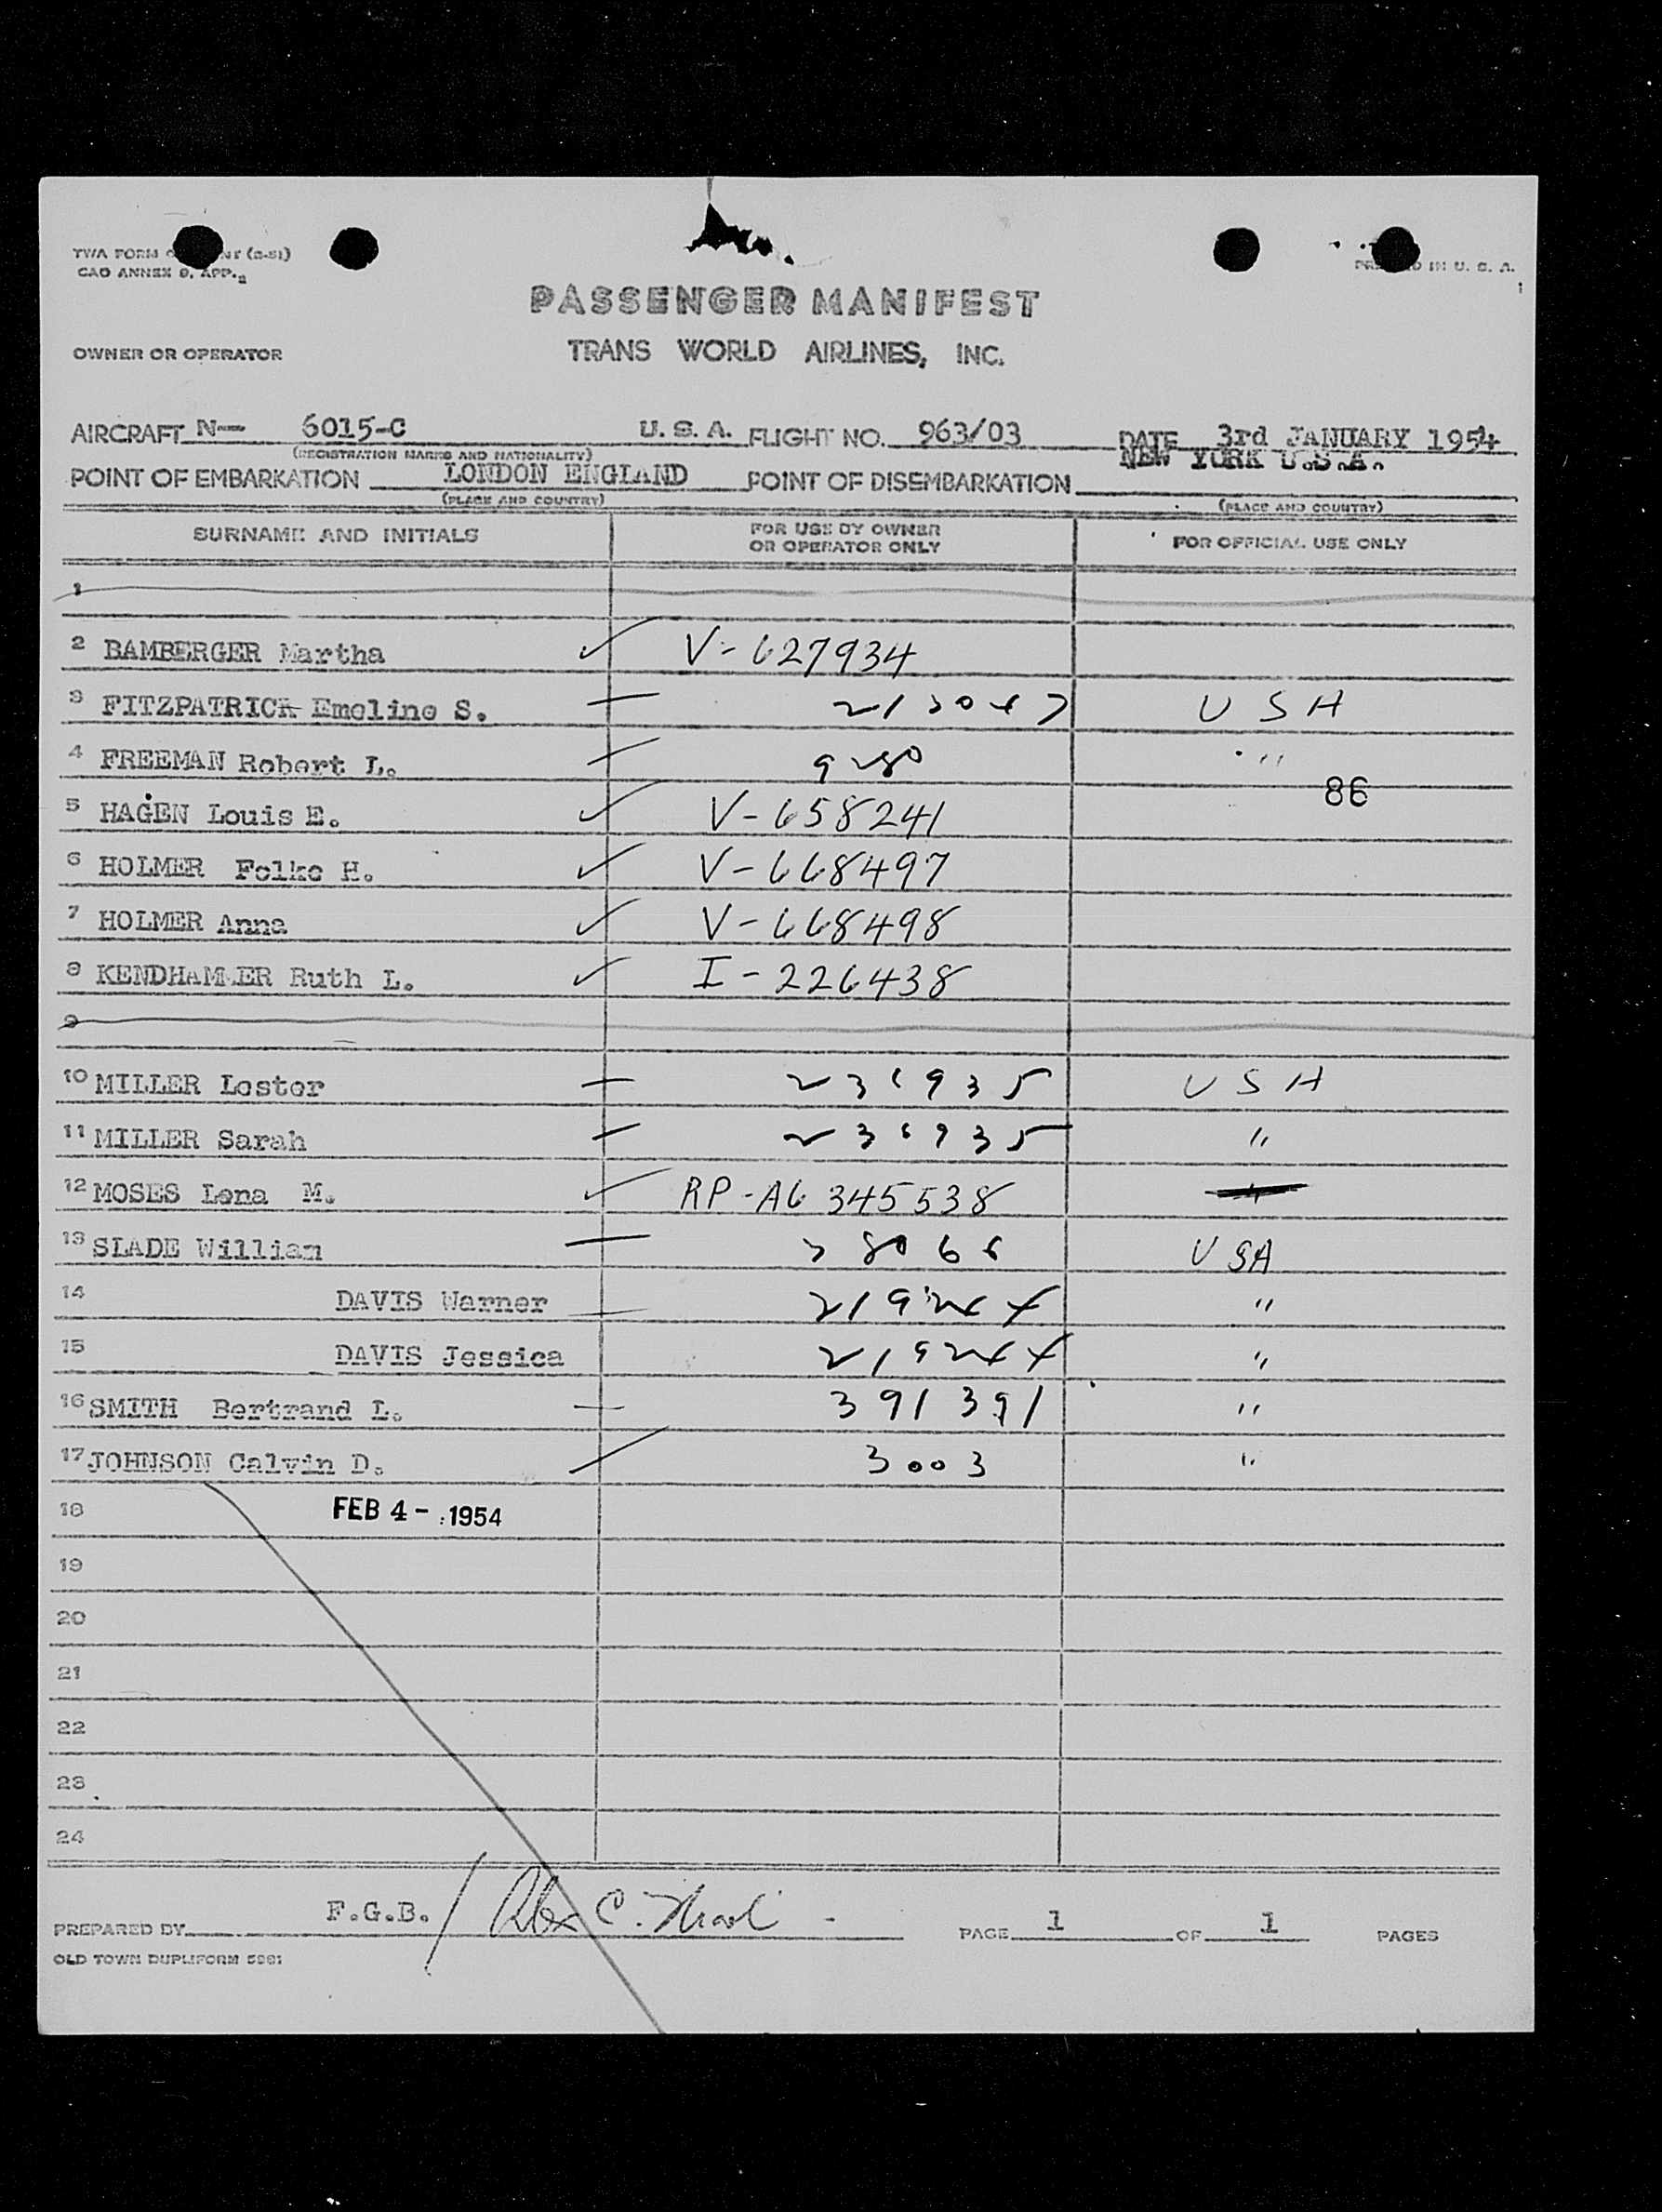 TWA FORM
(2-51)
CAO ANNEX 9, APP. 2
IN U. S. A.
PASSENGER MANIFEST
OWNER OR OPERATOR TRANS WORLD AIRLINES, INC.
AIRCRAFT N— 6015-C U. S. A. FLIGHT NO. 963/03 DATE 3rd JANUARY 1954
(REGISTRATION MARKS AND NATIONALITY)
NEW YORK U.S.A.
POINT OF EMBARKATION LONDON ENGLAND POINT OF DISEMBARKATION
(PLACE AND COUNTRY) (PLACE AND COUNTRY)
SURNAME AND INITIALS FOR USE BY OWNER OR OPERATOR ONLY FOR OFFICIAL USE ONLY
1
2 BAMBERGER Martha ✓ V-627934
3 FITZPATRICK Emeline S. — USA
4 FREEMAN Robert L. — 9280 "
86
5 HAGEN Louis E. ✓ V-658241
6 HOLMER Folke H. ✓ V-668497
7 HOLMER Anna ✓ V-668498
8 KENDHAMMER Ruth L. ✓ I-226438
9
10 MILLER Lester — 236935 USA
11 MILLER Sarah — 236935 "
12 MOSES Lena M. ✓ RP-A6 345538
13 SLADE William — USA
14 DAVIS Warner — "
15 DAVIS Jessica "
16 SMITH Bertrand L. — 391391 "
17 JOHNSON Calvin D. 3003 "
18 FEB 4 - 1954
19
20
21
22
23
24
PREPARED BY F.G.B. / Alex C. PAGE 1 OF 1 PAGES
OLD TOWN DUPLIFORM